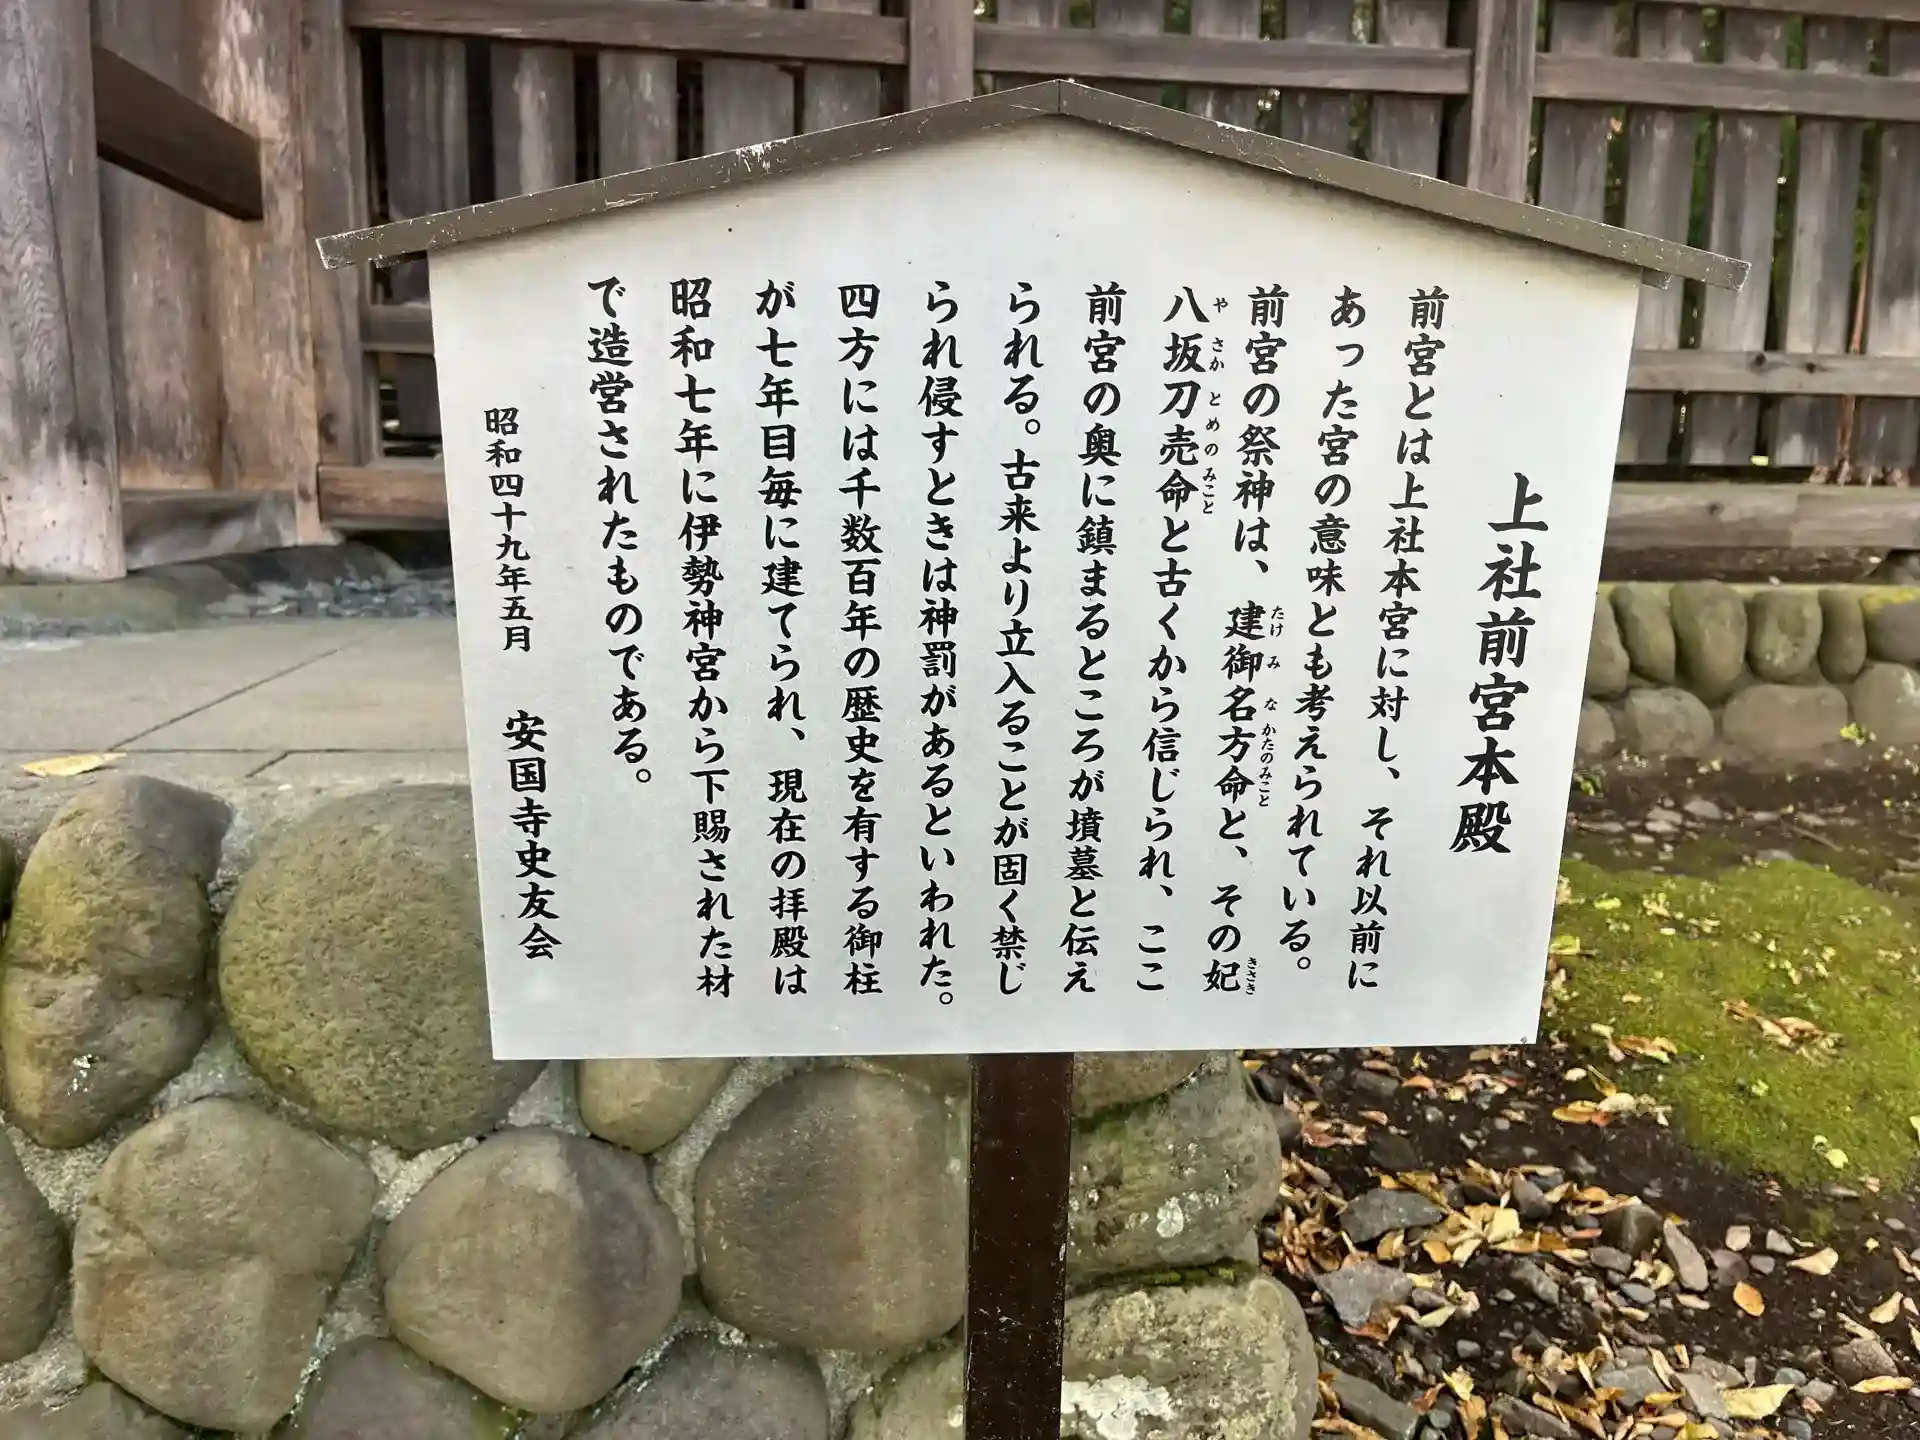 上社前宮本殿
前宮とは上社本宮に対し、それ以前に
あった宮の意味とも考えられている。
前宮の祭神は、建御名方命と、その妃
たけみなかたのみこと
きさき
八坂刀売命と古くから信じられ、ここ
やさかとめのみこと
前宮の奥に鎮まるところが墳墓と伝え
られる。古来より立入ることが固く禁じ
られ侵すときは神罰があるといわれた。
四方には千数百年の歴史を有する御柱
が七年目毎に建てられ、現在の拝殿は
昭和七年に伊勢神宮から下賜された材
で造営されたものである。
昭和四十九年五月 安国寺史友会